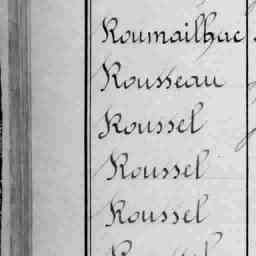 Roumailhac
Rousseau
Roussel
Roussel
Roussel